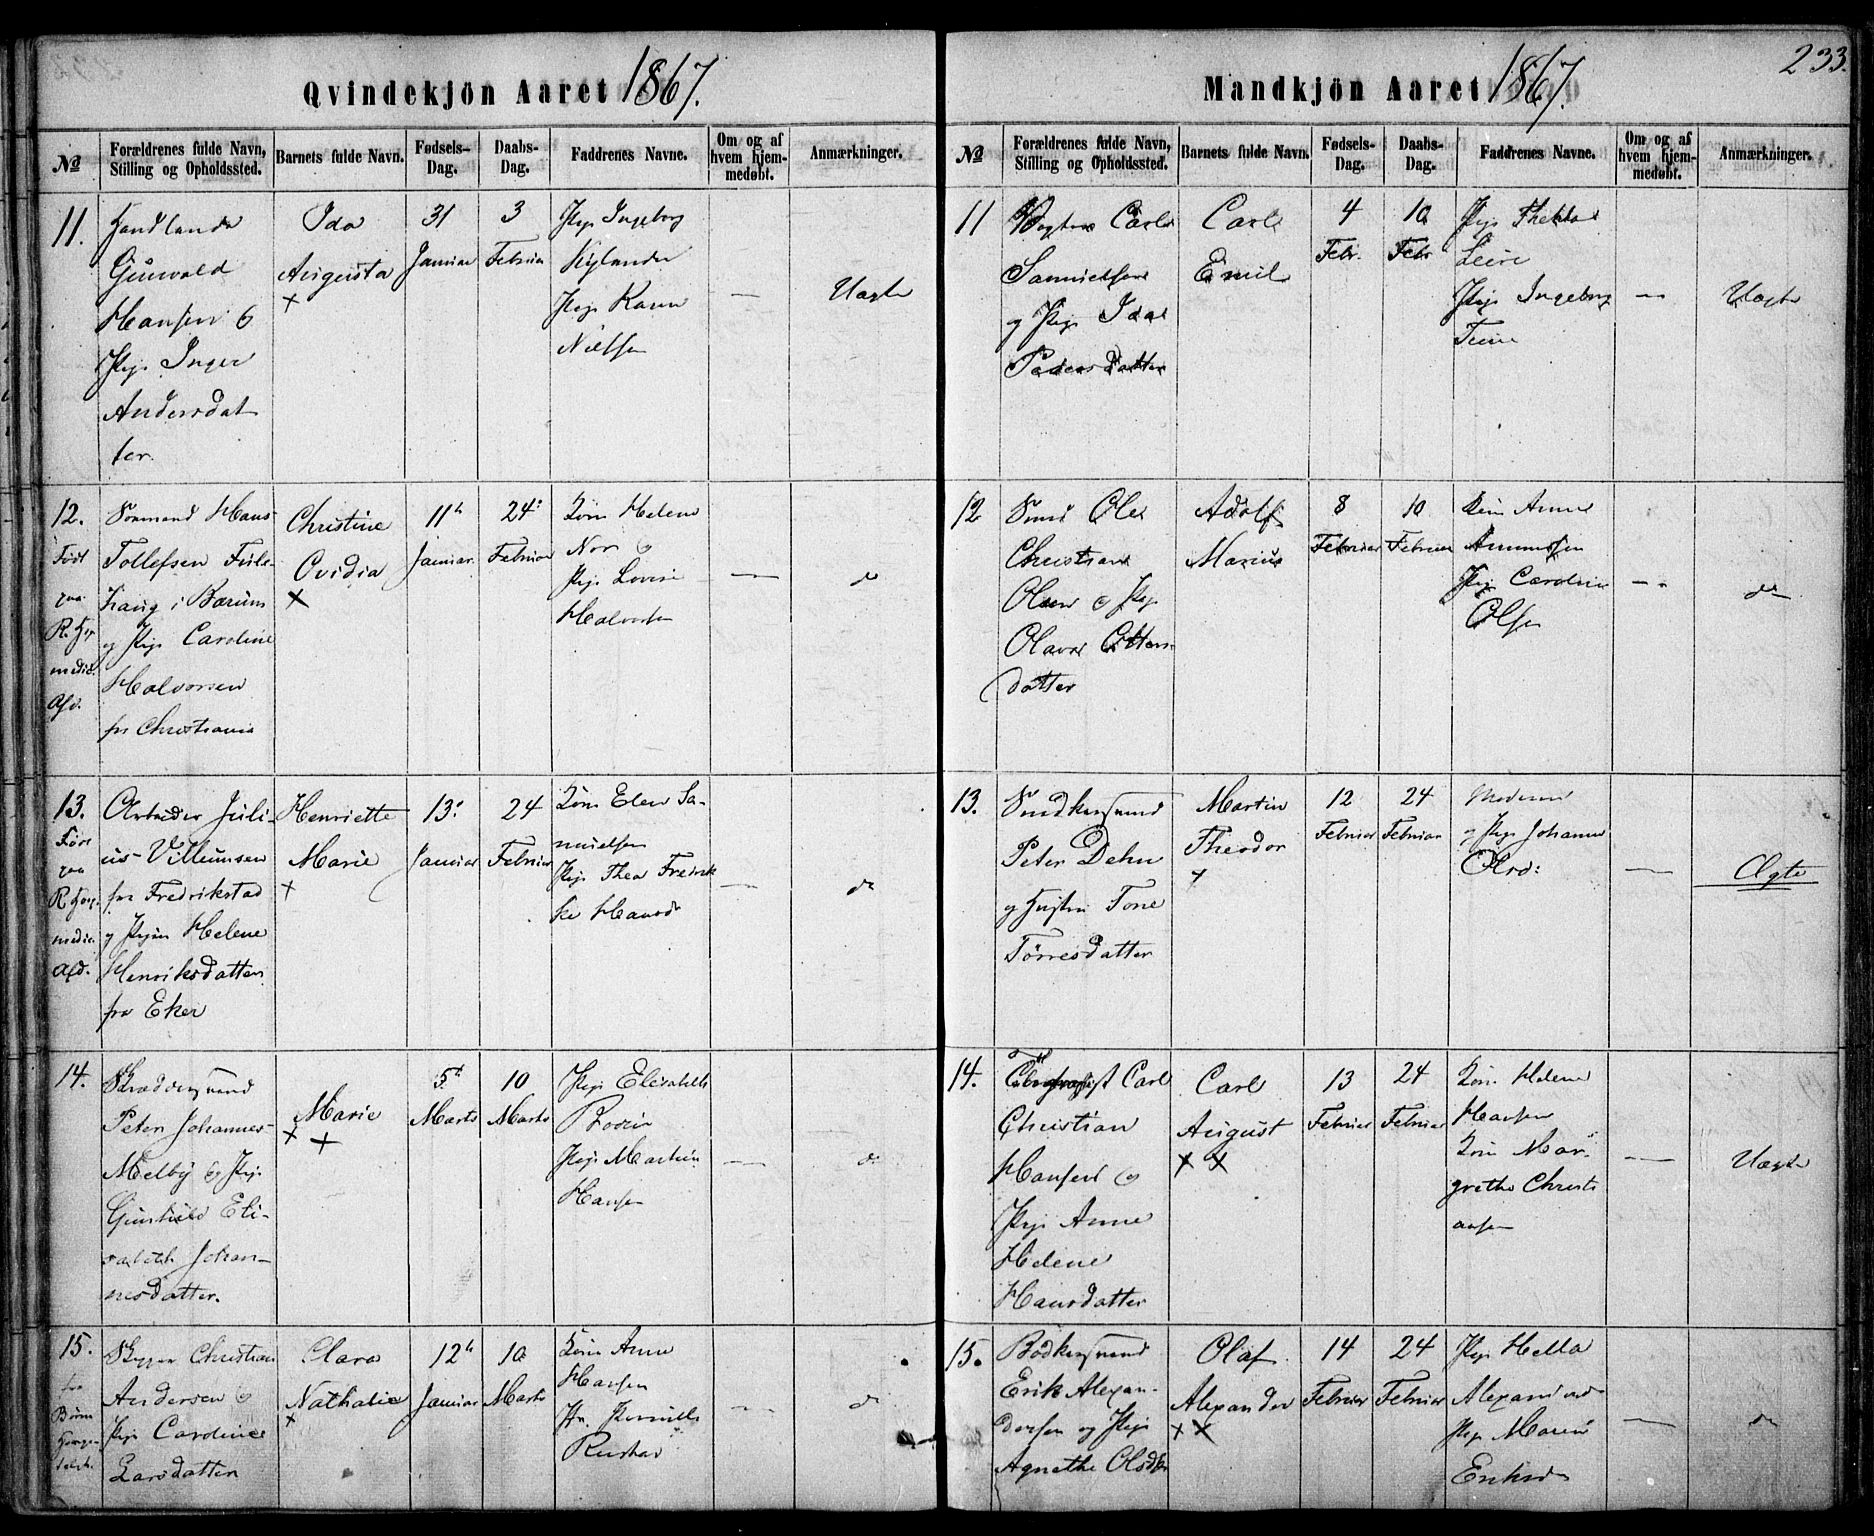 233.
Qvindekjön Aaret 1867.
№
Forældrenes fulde Navn, Stilling og Opholdssted.
Barnets fulde Navn.
Fødsels-Dag.
Daabs-Dag.
Faddrenes Navne.
Om og af hvem hjem-medøbt.
Anmærkninger.
11.
Gunvald
Hansen &
Pige Inger
Andersdat
ter.
Ida
Augusta
×
31
Januar
3
Februar
Pige Ingeborg
Pige Karen
Nielsen
—
Uægte
12.
Født
paa
R. Hosp
medic.
Afd.
Sømand Hans
Tollefsen
i Bærum
og Pige Caroline
Halvorsen
fra Christiania
Christine
Ovidia
×
11te
Januar
24:
Februar
Kone Helene
Nor &
Pige Lovise
Halvorsen
—
do
13.
Født
paa
R. Hosp.
medic.
Afd.
Arbeider Juli-
us Villumsen
fra Fredrikstad
og Pigen Helene
Henriksdatter
fra Eker
Henriette
Marie
×
13:
Januar
24
Februar
Kone Elen Sa-
muelsen
Pige Thea Fredrik
ke Hansd
—
do
14.
Skræddersvend
Peter Johannes
Melby & Pige
Gunhild Eli-
sabeth Johan-
nesdatter.
Marie
× ×
5te
Marts
10
Marts
Pige Elisabeth
Pige Martin
Hansen
—
do
15.
fra
Christian
Andersen &
Pige Caroline
Larsdatter
Clara
Nathalie
×
12te
Januar
10
Marts
Kone Anne
Hansen
—
do
Mandkjön Aaret 1867.
№
Forældrenes fulde Navn, Stilling og Opholdssted.
Barnets fulde Navn.
Fødsels-Dag.
Daabs-Dag.
Faddrenes Navne.
Om og af hvem hjem-medøbt.
Anmærkninger.
11
Carl
Samuelsen
og Pige Ida
Pedersdatter
Carl
Emil
4
Febr.
10
Febr
Pige Thekla
Pige Ingeborg
—
Uægte
12
Smed Ole
Christian
Olsen & Pige
Olava
datter
Adolf
Marius
8
Februar
10
Februar
Kone Anne
Amundsen
Pige Caroline
Olsen
—
do
13.
Peter Dehn
og Hustru Tone
Tørresdatter
Martin
Theodor
×
12
Februar
24
Februar
Moderen
og Pige Johanne
—
Ægte
14.
Carl
Christian
Hansen &
Pige Anne
Helene
Hansdatter
Carl
August
× ×
13
Februar
24
Februar
Kone Helene
Hansen
Kone Mar-
grethe Christi
ansen
—
Uægte
15.
Bødkersvend
Erik Alexan-
dersen og Pige
Agnethe Olsdtr
Olaf
Alexander
× ×
14
Februar
24
Februar
Pige Hella
Pige Maren
—
do